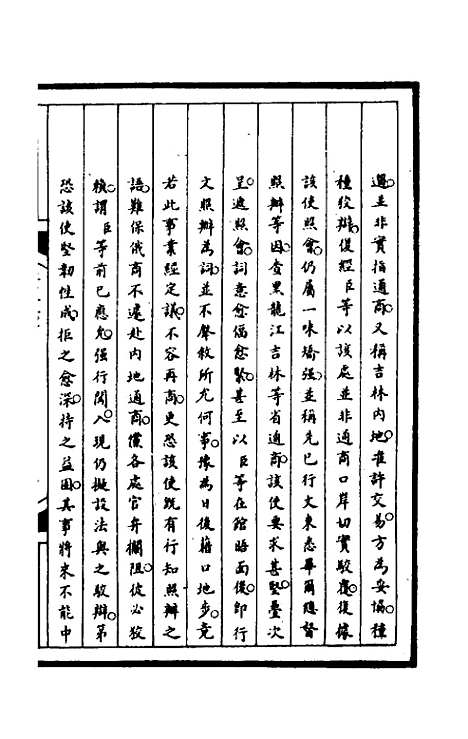 邊並非實指通商又稱吉林內地准許交易方為妥協種
種狡辯復經臣等以該處並非通商口岸切實駁覆復據
該使照會仍屬一味矯強並稱先已行文東悉畢爾總督
照辦等因查黑龍江吉林等省通商該使要求甚堅疊次
呈遞照會詞意愈偪愈緊甚至以臣等在館晤面後即行
文照辦為詞並不聲敘所允何事據為日後藉口地步竟
若此事業經定議不容再商更恐該使既有行知照辦之
語難保俄商不遽赴內地通商儻各處官弁攔阻彼必狡
賴謂臣等前已應允強行闖入現仍擬設法與之駁辯第
恐該使堅韌性成拒之愈深持之益固其事將來不能中